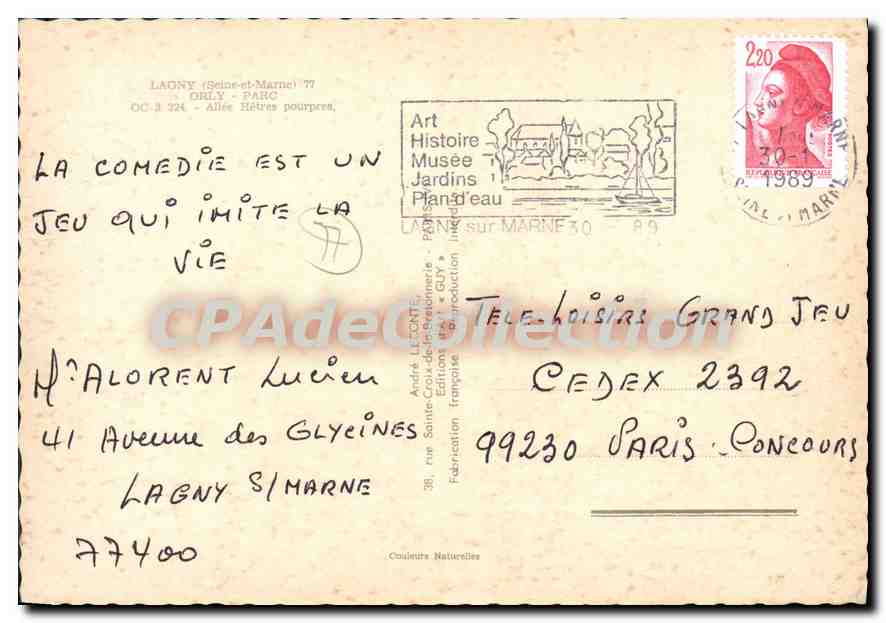 LAGNY (Seine-et-Marne) 77
ORLY - PARC
OC-3 324 - Allée Hêtres pourpres.
Art
Histoire
Musée
Jardins
Plan d'eau
LAGNY sur MARNE 30 - 89
2,20
REPUBLIQUE FRANÇAISE
30-1
1989
SEINE ET MARNE
LA COMEDIE EST UN
JEU QUI IMITE LA
VIE
77
Mr ALORENT Lucien
41 Avenue des GLYCINES
LAGNY S/MARNE
77400
André LECONTE,
38, rue Sainte-Croix-de-la-Bretonnerie - PARIS
Editions d'Art « GUY »
Fabrication française - Reproduction interdite
TELE-LOISIRS GRAND JEU
CEDEX 2392
99230 PARIS-CONCOURS
Couleurs Naturelles
CPAdeCollection